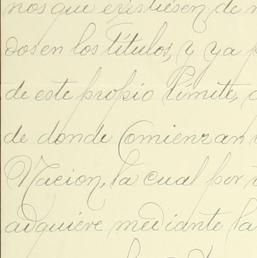 nos que existiesen de
dos en los títulos, y ya p
de este propio límite,
de donde comienzan
Nacion, la cual por
adquiere mediante la